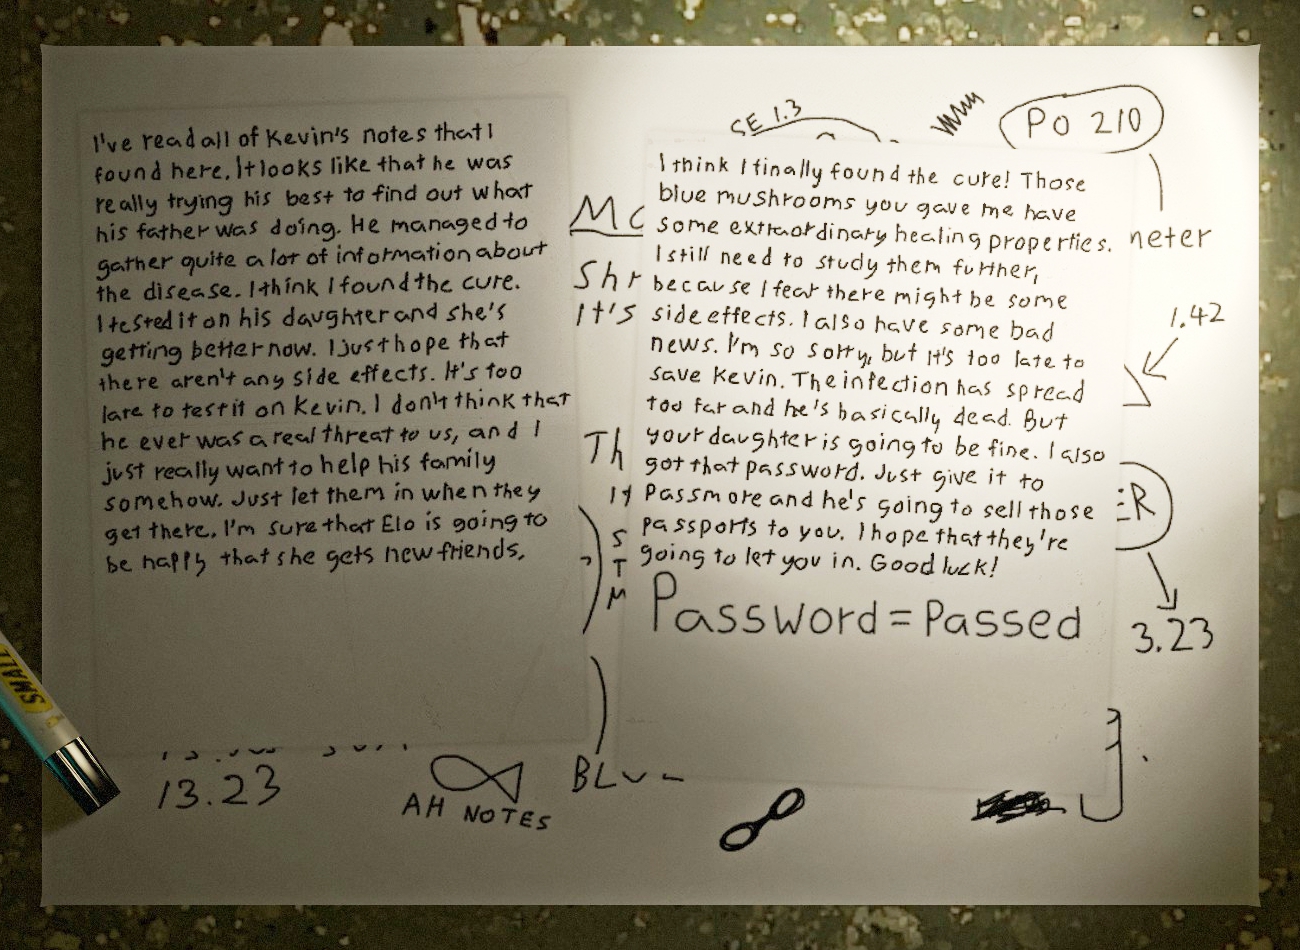 I've read all of Kevin's notes that I
found here. It looks like that he was
really trying his best to find out what
his father was doing. He managed to
gather quite a lot of information about
the disease. I think I found the cure.
I tested it on his daughter and she's
getting better now. I just hope that
there aren't any side effects. It's too
late to test it on Kevin. I don't think that
he ever was a real threat to us, and I
just really want to help his family
somehow. Just let them in when they
get there. I'm sure that Elo is going to
be happy that she gets new friends.
SE 1.3
PO 210
I think I finally found the cure! Those
blue mushrooms you gave me have
some extraordinary healing properties.
I still need to study them further,
because I fear there might be some
side effects. I also have some bad
news. I'm so sorry, but it's too late to
save Kevin. The infection has spread
too far and he's basically dead. But
your daughter is going to be fine. I also
got that password. Just give it to
Passmore and he's going to sell those
passports to you. I hope that they're
going to let you in. Good luck!
Password = Passed
Shr
It's
Th
S
T
M
neter
1.42
ER
3.23
13.23
AH NOTES